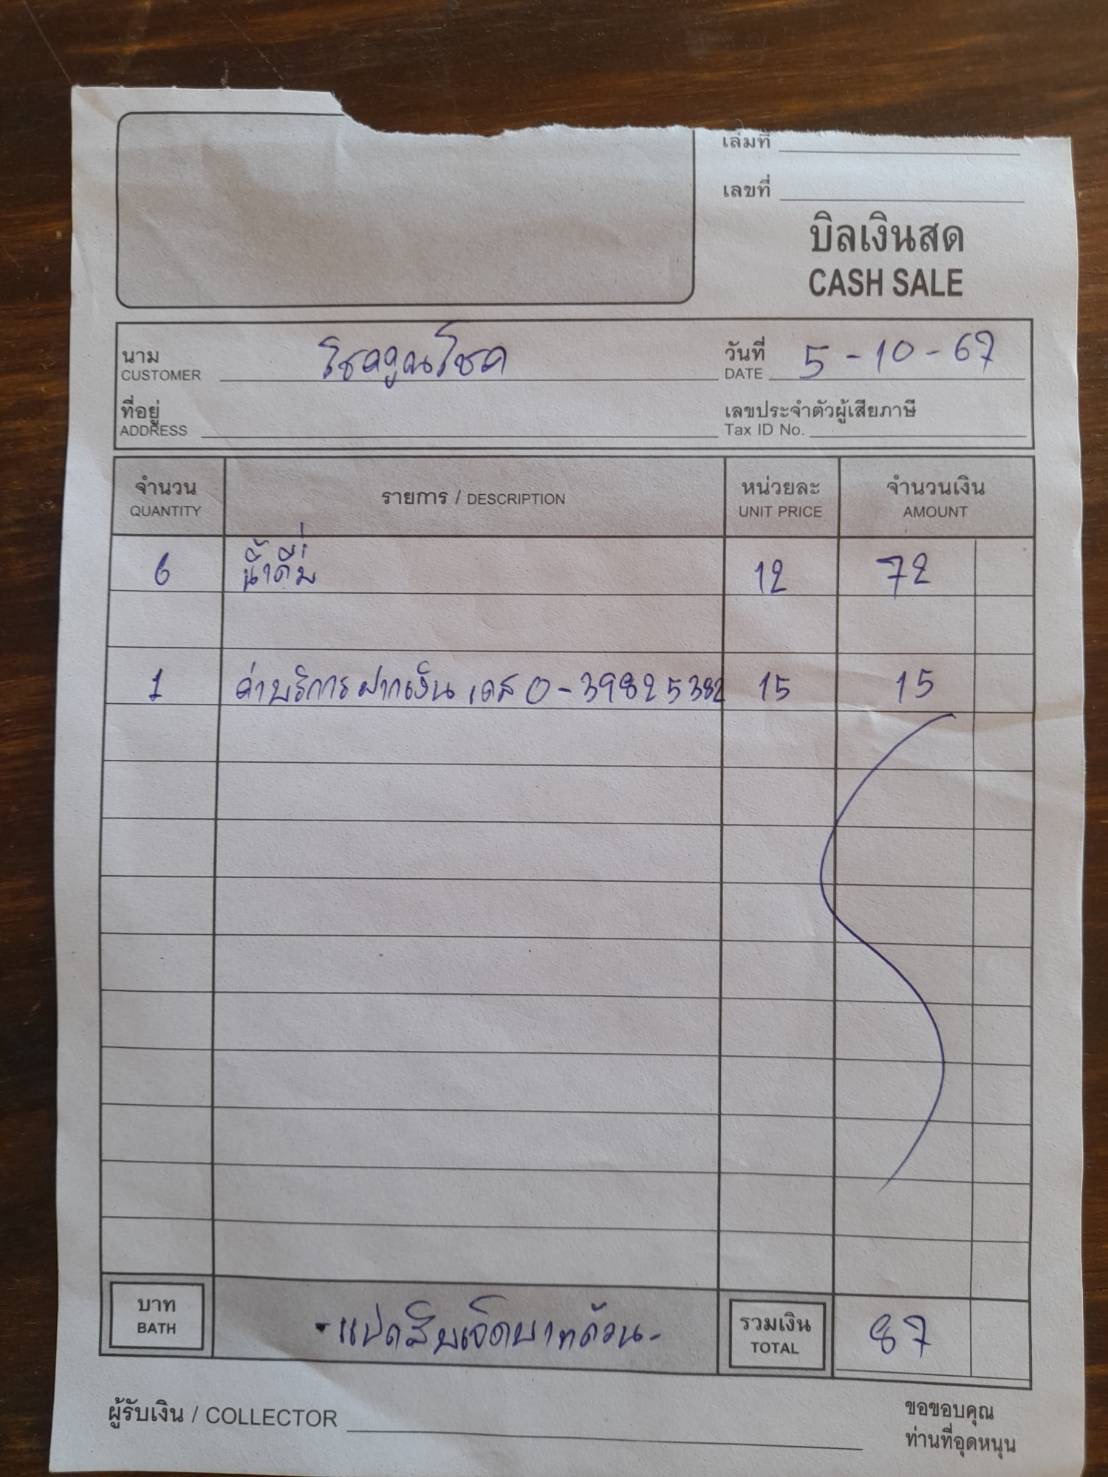 เล่มที่
เลขที่
บิลเงินสด
CASH SALE
นาม
CUSTOMER
โชคคูณโชค
วันที่
DATE
5 - 10 - 67
ที่อยู่
ADDRESS
เลขประจำตัวผู้เสียภาษี
Tax ID No.
จำนวน
QUANTITY
รายการ / DESCRIPTION
หน่วยละ
UNIT PRICE
จำนวนเงิน
AMOUNT
6 น้ำดื่ม 12 72
1 ค่าบริการ ฝากเงิน เคส 0-39825382 15 15
บาท
BATH
-แปดสิบเจ็ดบาทถ้วน-
รวมเงิน
TOTAL
87
ผู้รับเงิน / COLLECTOR
ขอขอบคุณ
ท่านที่อุดหนุน